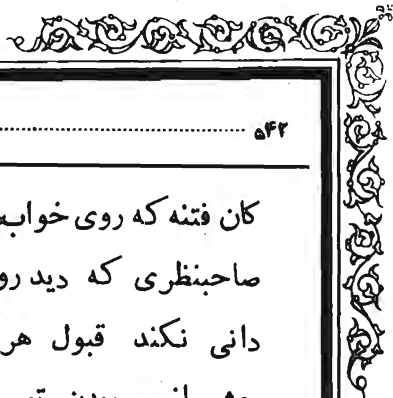 ۵۴۲
کان فتنه که روی خوا
صاحبنظری که دید رو
دانی نکند قبول هر